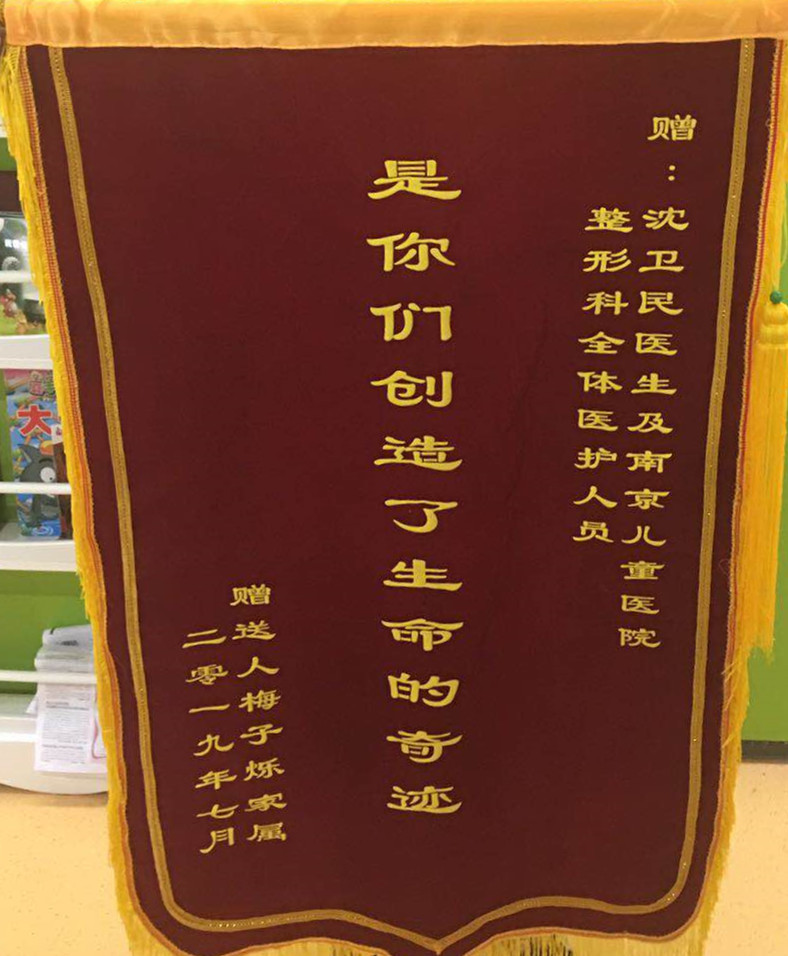 赠：沈卫民医生及南京儿童医院
整形科全体医护人员
是你们创造了生命的奇迹
赠送人梅子烁家属
二零一九年七月
大